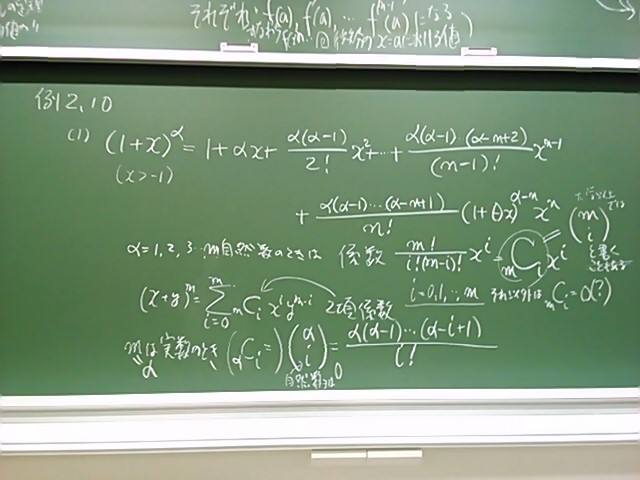 それぞれ、f(a), f'(a), … f^(n-1)(a)
例2.10
(1) (1+x)^α = 1 + αx + α(α-1)/2! x² + … + α(α-1) (α-n+2)/(n-1)! x^(n-1)
(x > -1)
+ α(α-1)…(α-n+1)/n! (1+θx)^(α-n) x^n
α=1, 2, 3 … m 自然数のときは 係数 m!/i!(m-i)! x^i = mCi x^i (m i) と書く
(x+y)^m = Σ_{i=0}^{m} mCi x^i y^(m-i) 2項係数 i=0,1,…,m それ以外は mCi = 0(?)
mは実数のとき (αCi=) (α i) = α(α-1)…(α-i+1)/i!
"α 自然数又は0